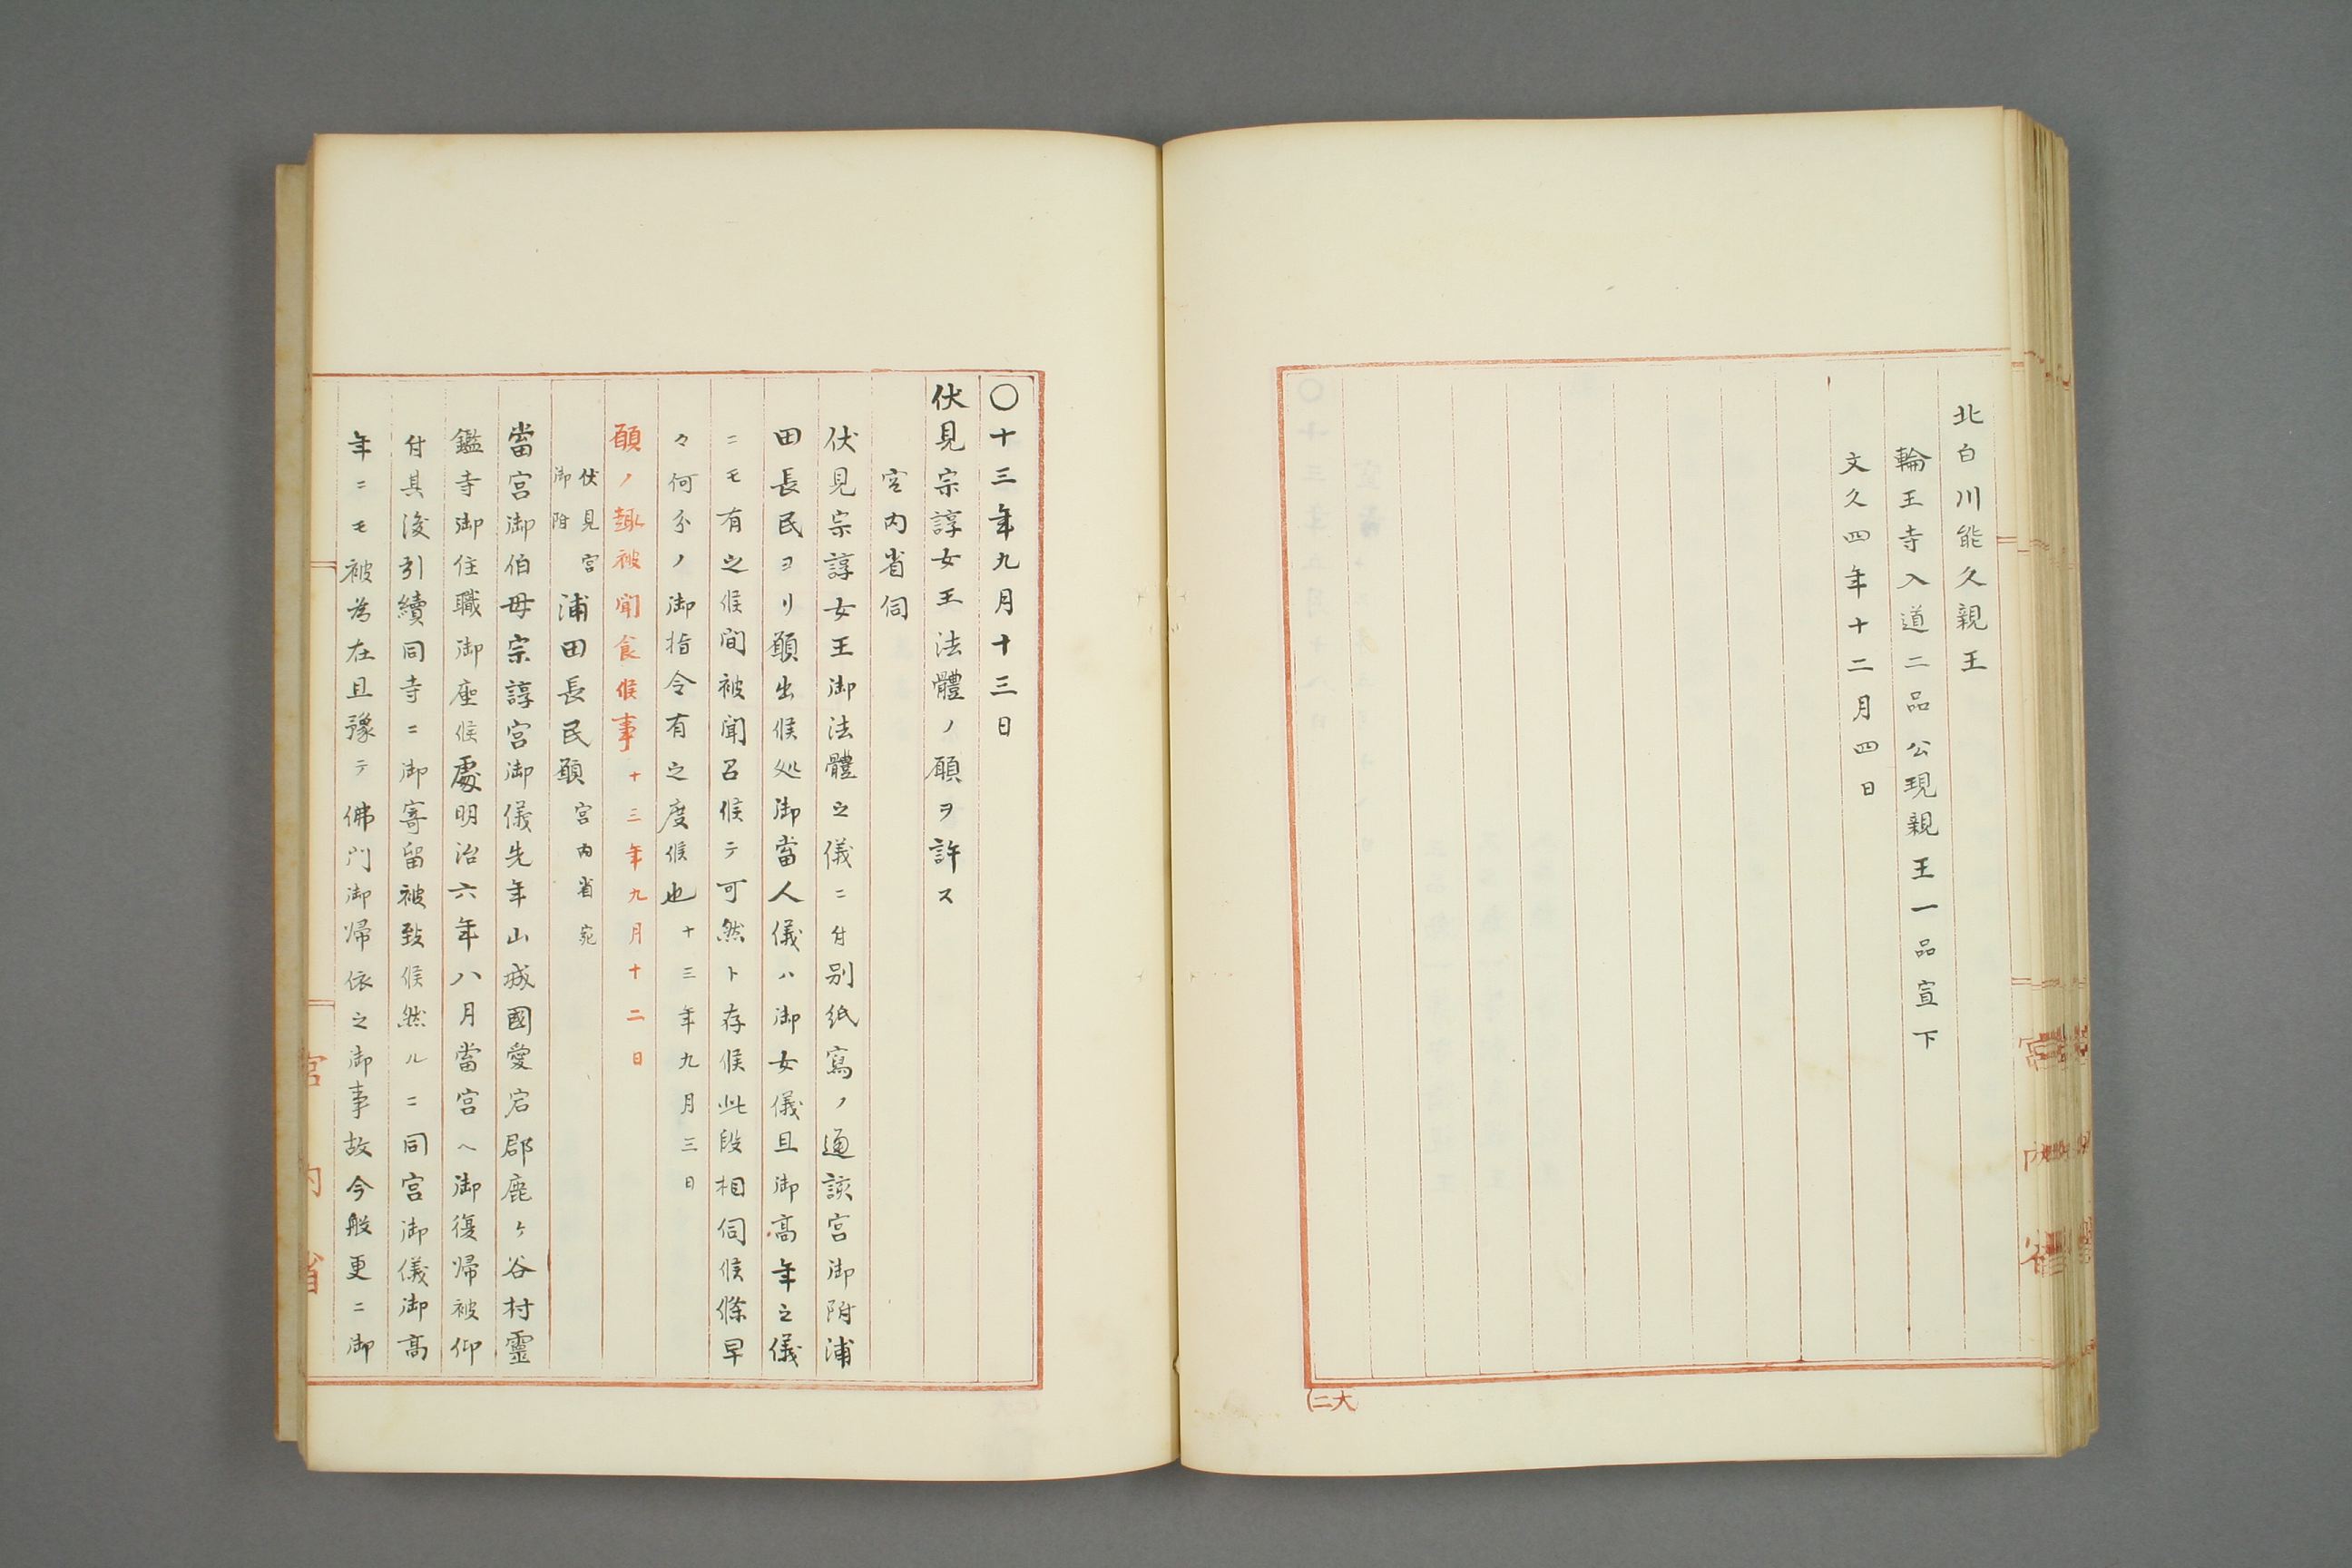 北白川能久親王
輪王寺入道二品公現親王一品宣下
文久四年十二月四日
〇十三年九月十三日
伏見宗諄女王法體ノ願ヲ許ス
宮内省伺
伏見宗諄女王御法體之儀ニ付別紙寫ノ通該宮御附浦
田長民ヨリ願出候処御當人儀ハ御女儀且御高年之儀
ニモ有之候間被聞召候テ可然ト存候此段相伺候條早
々何分ノ御指令有之度候也 十三年九月三日
願ノ趣被聞食候事 十三年九月十二日
伏見宮
御附
浦田長民願 宮内省宛
當宮御伯母宗諄宮御儀先年山城國愛宕郡鹿ヶ谷村靈
鑑寺御住職御座候處明治六年八月當宮ヘ御復帰被仰
付其後引續同寺ニ御寄留被致候然ルニ同宮御儀御高
年ニモ被為在且豫テ佛門御帰依之御事故今般更ニ御
宮内省